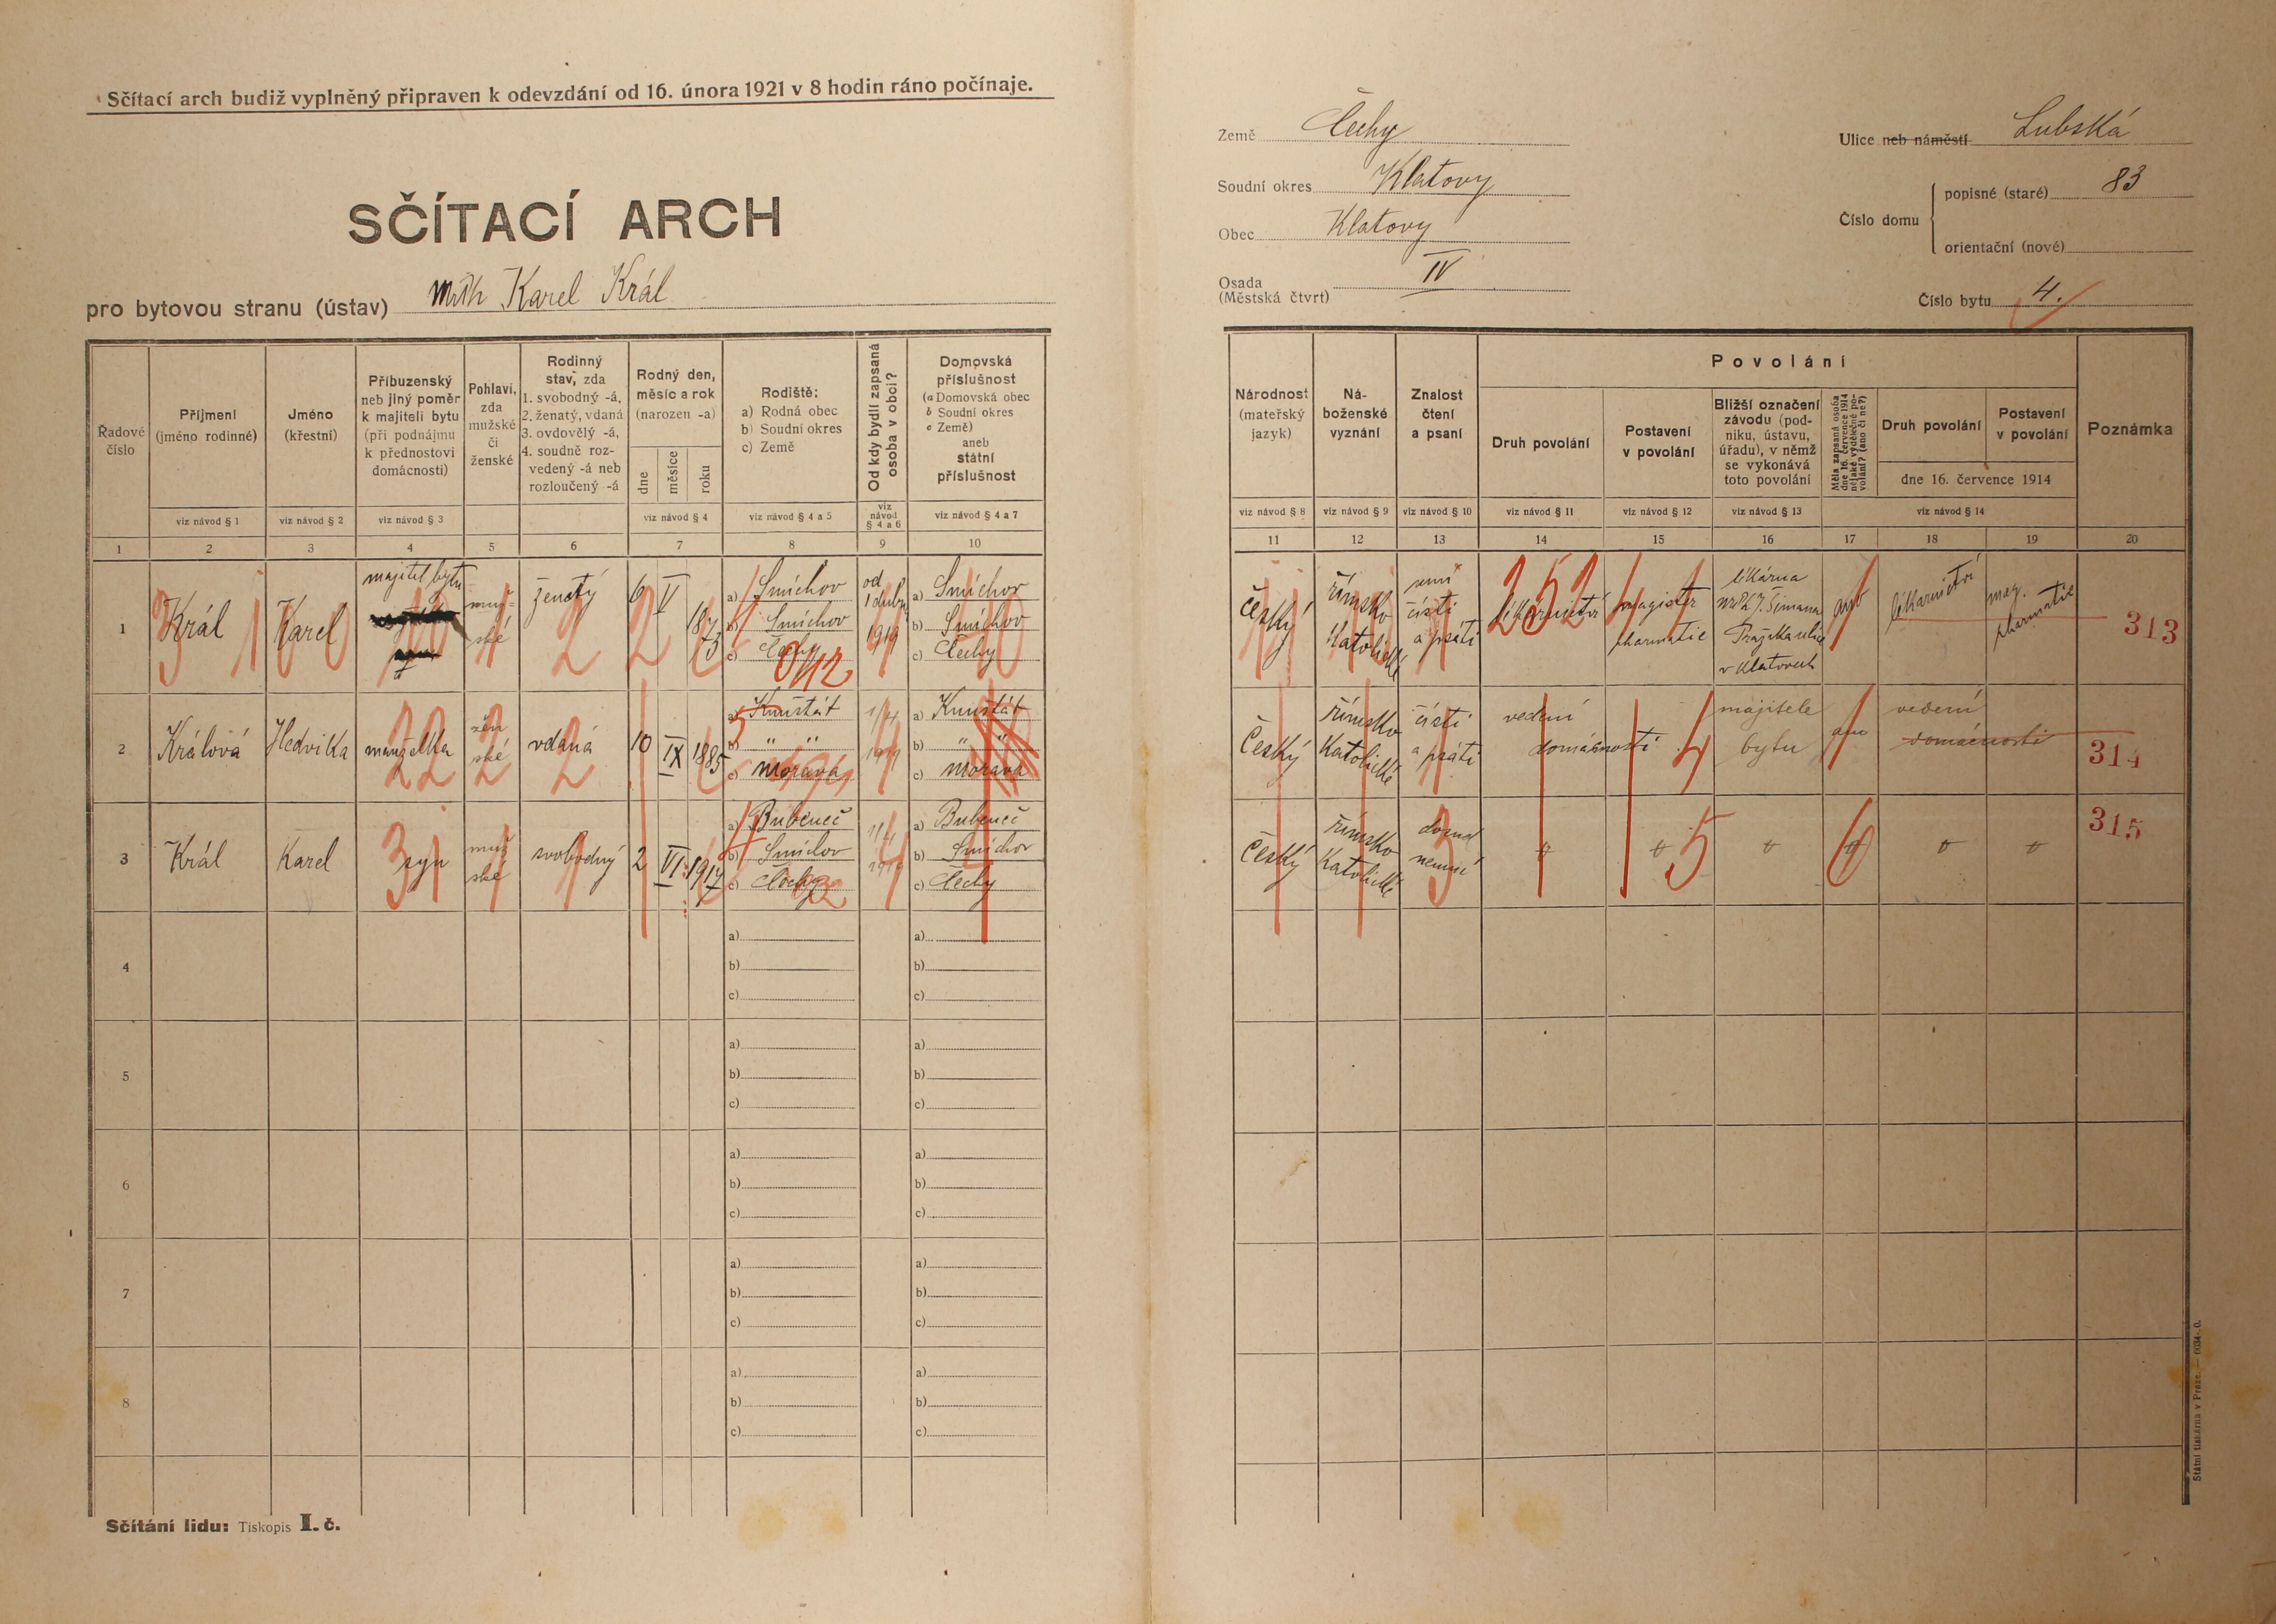 Sčítací arch budiž vyplněný připraven k odevzdání od 16. února 1921 v 8 hodin ráno počínaje.
SČÍTACÍ ARCH
pro bytovou stranu (ústav) Karel Král
Země Čechy
Soudní okres Klatovy
Obec Klatovy
Osada
(Městská čtvrt) IV
Ulice neb náměstí Lubská
Číslo domu
popisné (staré) 83
orientační (nové)
Číslo bytu 4.
Řadové
číslo
Příjmení
(jméno rodinné)
viz návod § 1
Jméno
(křestní)
viz návod § 2
Příbuzenský
neb jiný poměr
k majiteli bytu
(při podnájmu
k přednostovi
domácnosti)
viz návod § 3
Pohlaví,
zda
mužské
či
ženské
Rodinný
stav, zda
1. svobodný -á,
2. ženatý, vdaná
3. ovdovělý -á,
4. soudně roz-
vedený -á neb
rozloučený -á
Rodný den,
měsíc a rok
(narozen -a)
dne
měsíce
roku
viz návod § 4
Rodiště:
a) Rodná obec
b) Soudní okres
c) Země
viz návod § 4 a 5
Od kdy bydlí zapsaná
osoba v obci?
viz
návod
§ 4 a 6
Domovská
příslušnost
(a Domovská obec
b Soudní okres
c Země)
aneb
státní
příslušnost
viz návod § 4 a 7
Národnost
(mateřský
jazyk)
viz návod § 8
Ná-
boženské
vyznání
viz návod § 9
Znalost
čtení
a psaní
viz návod § 10
Povolání
Druh povolání
viz návod § 11
Postavení
v povolání
viz návod § 12
Bližší označení
závodu (pod-
niku, ústavu,
úřadu), v němž
se vykonává
toto povolání
viz návod § 13
Měla zapsaná osoba
dne 16. července 1914
nějaké výdělečné po-
volání? (ano či ne?)
Druh povolání
Postavení
v povolání
dne 16. července 1914
viz návod § 14
Poznámka
1 2 3 4 5 6 7 8 9 10
11 12 13 14 15 16 17 18 19 20
1
Král
Karel
majitel bytu
muž-
ské
ženatý
6 V 1873
a) Smíchov
b) Smíchov
c) Čechy
042
od
1 dubna
1919
a) Smíchov
b) Smíchov
c) Čechy
Český
římsko
katolické
umí
čísti
a psáti
252
lékárnictví
magister
pharmatie
lékárna
v Klatovech
ano
lékárnictví
mag.
pharmatie
313
2
Králová
Hedvika
manželka
22
žen
ské
2
vdaná
2
10 IX 1885
a) Kunštát
b) " "
c) Morava
1/4
1919
a) Kunštát
b) " "
c) Morava
Český
římsko
Katolické
čísti
a psáti
vedení
domácnosti
4
majitele
bytu
ano
vedení
domácnosti
314
3
Král
Karel
syn
muž
ské
svobodný
2 VI. 1917
a) Bubeneč
b) Smíchov
c) Čechy
a) Bubeneč
b) Smíchov
c) Čechy
Český
římsko
Katolické
dosud
neumí
3
5
6
315
4
a)
b)
c)
a)
b)
c)
5
a)
b)
c)
a)
b)
c)
6
a)
b)
c)
a)
b)
c)
7
a)
b)
c)
a)
b)
c)
8
a)
b)
c)
a)
b)
c)
Sčítání lidu: Tiskopis I. č.
Státní tiskárna v Praze. — 6034-0.